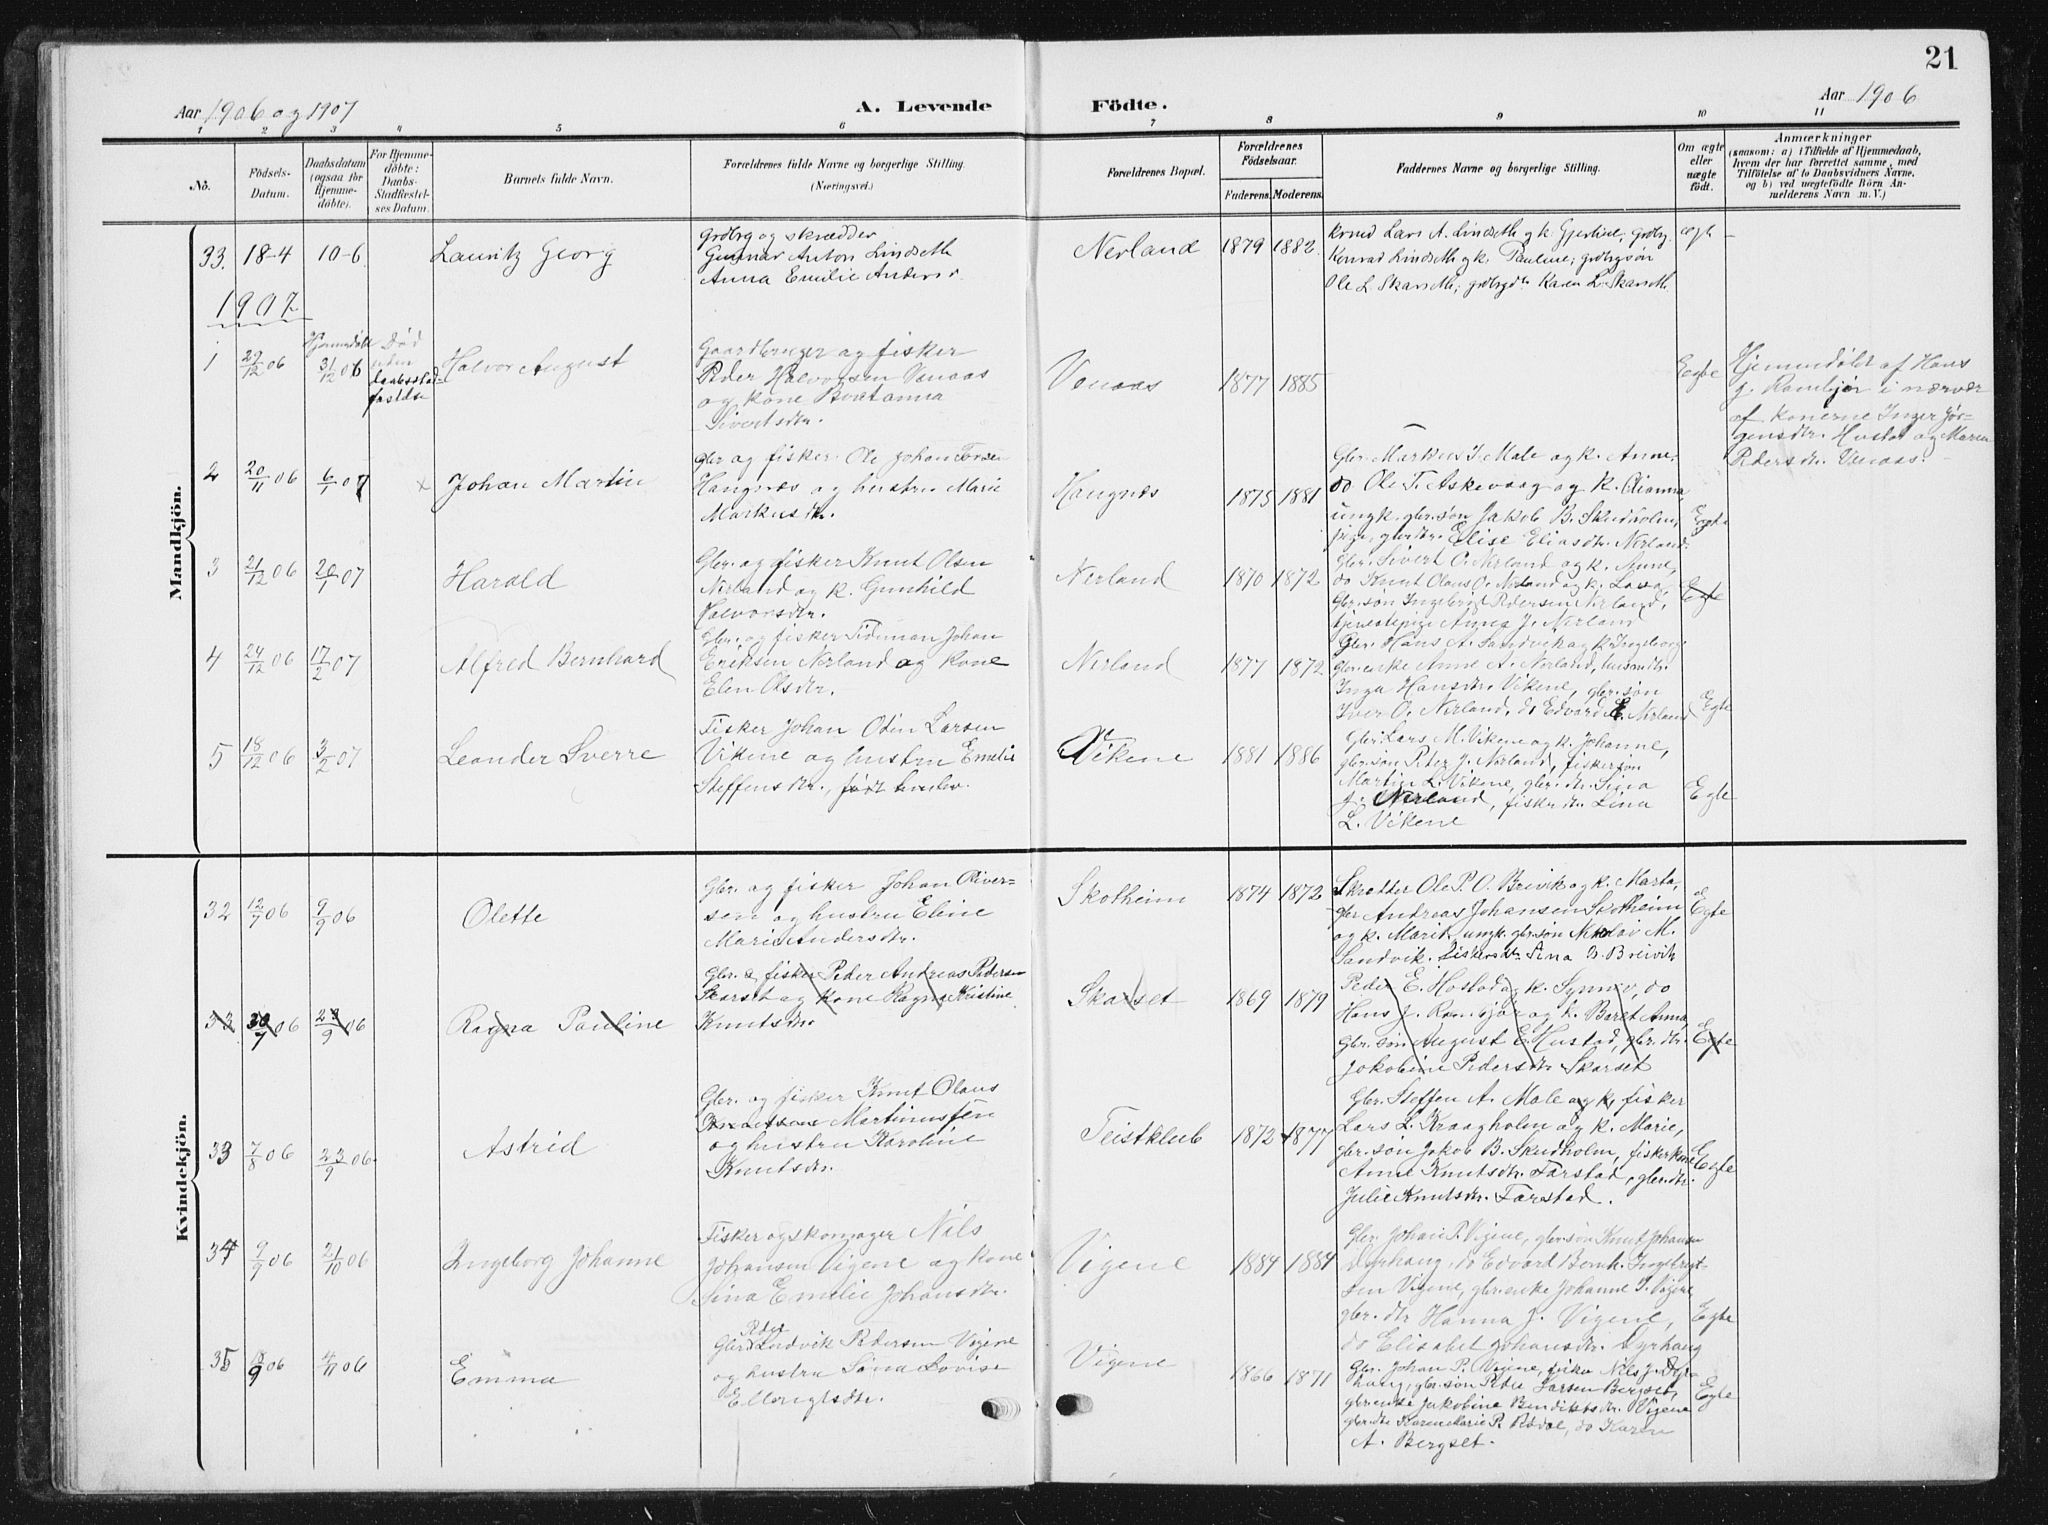 21
Aar 1906 og 1907
A. Levende
Födte.
Aar 1906
1 2 3 4 5 6 7 8 9 10 11
No.
Födsels-Datum.
Daabsdatum (ogsaa for Hjemme-döbte).
For Hjemme-döbte: Daabs-Stadfæstel-ses Datum.
Barnets fulde Navn.
Forældrenes fulde Navne og borgerlige Stilling
(Næringsvei.)
Forældrenes Bopæl.
Forældrenes Födselsaar.
Faderens.
Moderens.
Faddernes Navne og borgerlige Stilling.
Om ægte eller uægte födt.
Anmærkninger
(saasom: a) i Tilfælde af Hjemmedaab,
hvem der har forrettet samme, med
Tilföielse af to Daabsvidners Navne,
og b) ved uægtefödte Börn An-
melderens Navn m. V.)
Mandkjön.
33. 18-4 10-6 Lauritz Georg
Grdbrg og skrædder
Gunnar Anton Lindseth
Anna Emilie Anders
Nerland 1879 1882
Lars A. Lindseth og k. Gjertine, grdbrg.
Konrad Lindseth og k. Pauline; grdbrgsøn
Ole L. Skarseth; grdbrgdr. Karen L. Skarseth.
ægte
1907
1 29/12 06 Hjemmedøbt 31/12 06
Død uden daabsstad-fæstelse
Halvor August
Gaardbruger og fisker
Peder Halvorsen Vonaas
og kone Beretanna
Sivertsdtr.
Vonaas 1877 1885
Egte
Hjemmedøbt af Hans
J. Rambjør i nærvær
af konerne Inger Jör-
gensdtr. Hustad og Maren
Pedersdtr. Vonaas.
2 20/11 06 6/1 07 x Johan Martin
Gbr. og fisker Ole Johan
Haugnæs og hustru Marie
Markusdtr.
Haugnæs 1875 1881
Gbr. Markus J. Male og k. Anne,
do Ole T. Askevaag og k. Elianna,
ungk. gbr.søn Jakob B. Skudholm,
pige, gbrdtr. Elise Eliasdtr. Nerland.
Egte
3 21/12 06 20/1 07 Harald
Gbr. og fisker Knut Olsen
Nerland og k. Gunhild
Halvorsdtr.
Nerland 1870 1872
Gbr. Sivert O. Nerland og k. Anne,
do Knut Olaus O. Nerland og k.
Gbr.søn Ingebrigt Pedersen Nerland,
tjenestepige Anna J. Nerland
Egte
4 24/12 06 17/2 07 Alfred Bernhard
Gbr. og fisker Tideman Johan
Eriksen Nerland og kone
Elen Olsdtr.
Nerland 1877 1872
Gbr. Hans A. Sandvik og k. Ingeborg
gbr.enke Anne A. Nerland, husmdtr.
Inga Hansdtr. Vikene, gbr.søn
Iver O. Nerland, do Edvard E. Nerland
Egte
5 18/12 06 3/2 07 Leander Sverre
Fisker Johan Odin Larsen
Vikene og hustru Emelie
Steffensdtr.,
Vikene 1881 1886
Gbr. Lars M. Vikene og k. Johanne,
gbr.søn Peter J. Nerland, fiskersøn
Martin L. Vikene, gbr. dtr. Sina
J. Nerland, fisker dtr. Lina
L. Vikene
Egte
Kvindekjön.
32 12/7 06 9/9 06 Olette
Gbr. og fisker Johan Siver-
sen og hustru Eline
Marie Andersdtr.
Skotheim 1874 1872
Skrætter Ole P. O. Breivik og k. Marta,
gbr. Andreas Johansen Skotheim
og k. Marit, ungk. gbr.søn Nikolai M.
Sandvik. Sina B. Breivik
Egte
33 30/7 06 23/9 06 Ragna Pauline
Gbr. & fisker Peder Andreas Pedersen
Skarset og kone Ragna Kristine
Knutsdtr.
Skarset 1869 1879
Peder E. Hostad og k. Synnøv, do
Hans J. Rambjør og k. Beret Anna,
Gbr. søn August E. Hustad, gbr. dtr.
Jakobine Pedersdtr. Skarset
Egte
33 7/8 06 23/9 06 Astrid
Gbr. og fisker Knut Olaus
Knutsen Martinussen
og hustru Karoline
Knutsdtr.
Teistklub 1872 1877
Gbr. Steffen A. Male og k, fisker
Lars L. Kraagholm og k. Marie,
gbr. søn Jakob B. Skudholm, fiskerkone
Anne Knutsdtr. Farstad, gbr. dtr.
Julie Knutsdtr. Farstad.
Egte
34 9/9 06 21/10 06 Ingeborg Johanne
Fisker og skomager Nils
Johansen Vigene og kone
Sina Emelie Johansdtr.
Vigene 1884 1884
Gbr. Johan P. Vigene, gbr.søn Knut Johansen
Dyrhaug, do Edvard Bernh. Ingebrigt-
sen Vigene, gbr.enke Johanne I. Vigene
gbr. dtr Hanna J. Vigene,
do Elisabet Johansdtr. Dyrhaug
Egte
35 18/9 06 4/11 06 Emma
Gbr. Peder Ludvik Pedersen Vigene
og hustru Sina Lovise
Ellevigtsdtr.
Vigene 1866 1871
Gbr. Johan P. Vigene, fisker Nils J. Dyr-
haug, gbr.søn Peder Larsen Bergset,
gbr.enke Jakobine Bendiktsdtr. Vigene
gbr.dtr Karen Marie P. Rødal, do Karen
A. Bergset.
Egte